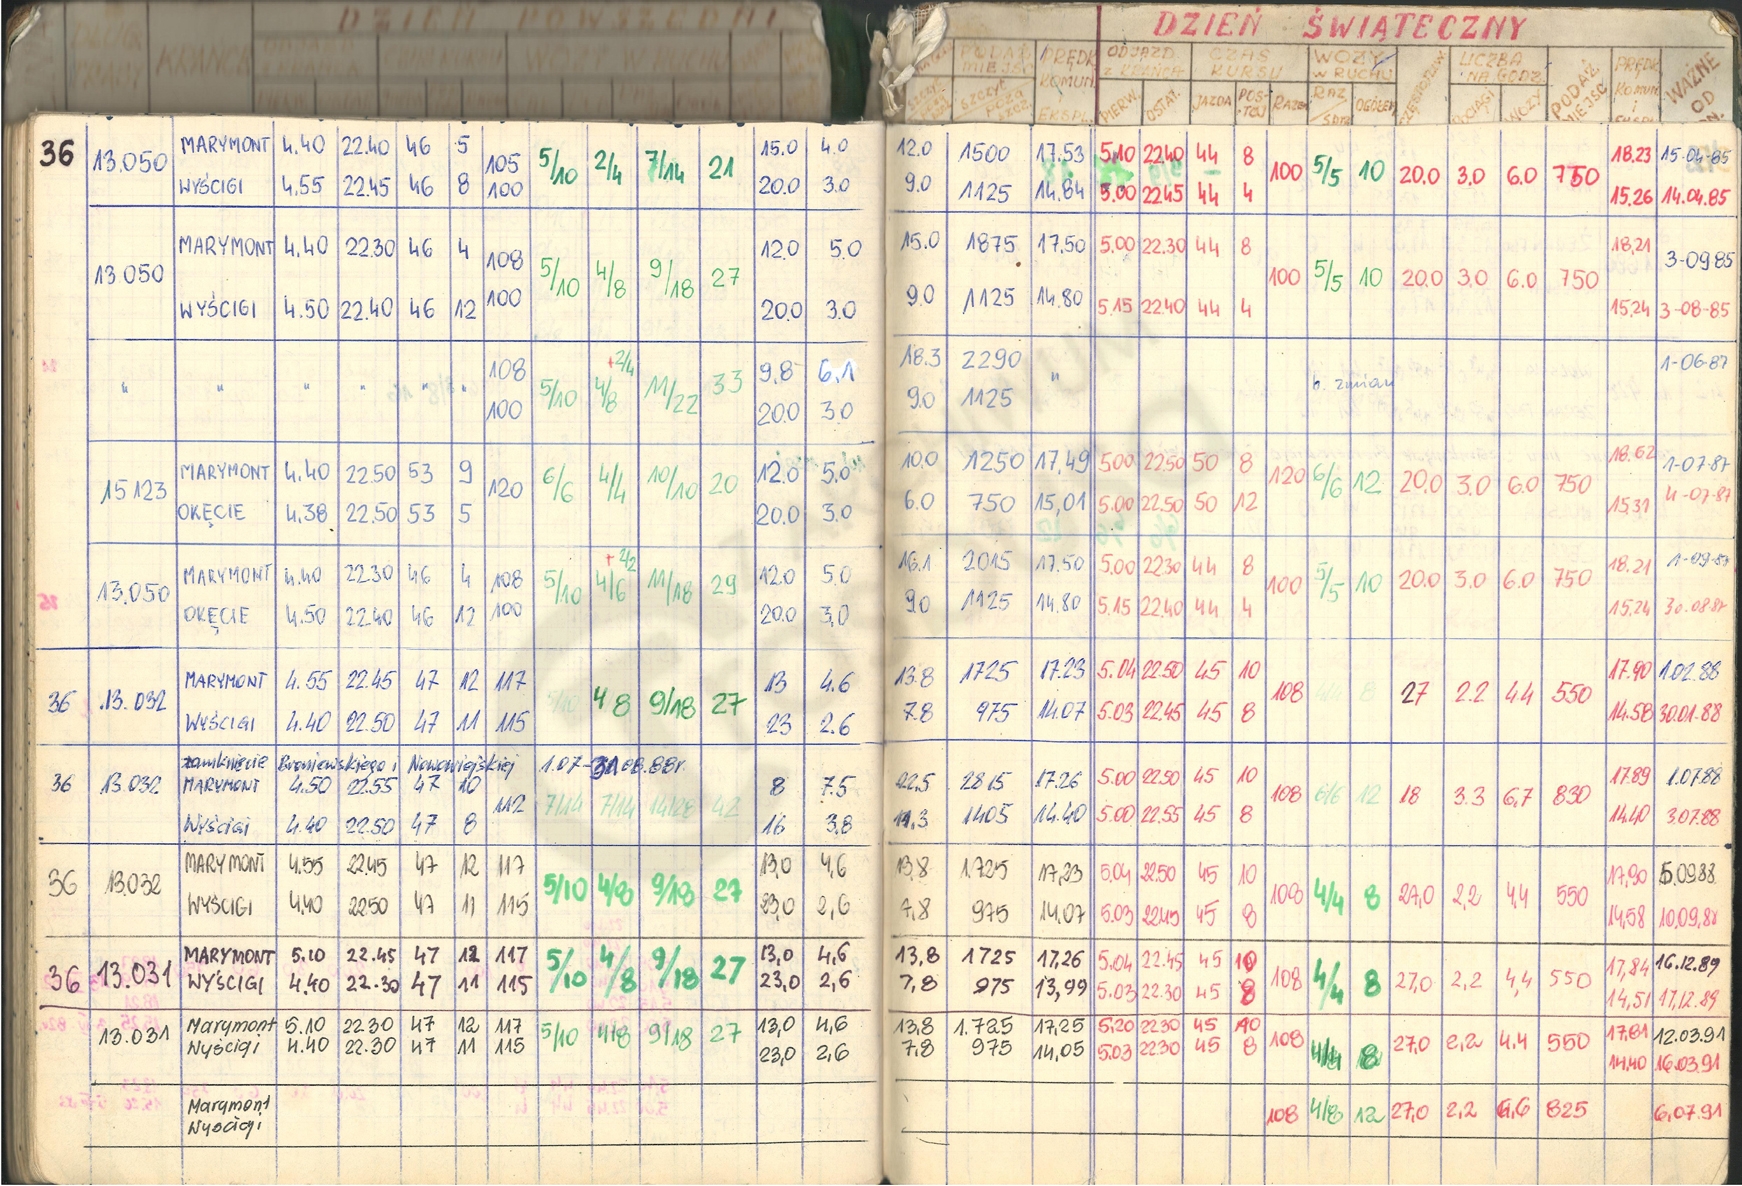 DZIEŃ POWSZEDNI
DZIEŃ ŚWIĄTECZNY
KRAŃCE
PODAŻ MIEJSC PRĘDK. KOMUN. ODJAZD z KRAŃCA CZAS KURSU WOZY w RUCHU LICZBA NA GODZ. PODAŻ MIEJSC PRĘDK. KOMUN. i WAŻNE OD
EKSPL. PIERW. OSTAT. JAZDA POS-TÓJ RAZEM OGÓŁEM POCIĄGI WOZY
36 13.050 MARYMONT 4.40 22.40 46 5 105 5/10 2/4 7/14 21 15.0 4.0 12.0 1500 17.53 5.10 22.40 44 8 100 5/5 10 20.0 3.0 6.0 750 18.23 15-04-85
WYŚCIGI 4.55 22.45 46 8 100 20.0 3.0 9.0 1125 14.84 5.00 22.45 44 4 15.26 14.04.85
13.050 MARYMONT 4.40 22.30 46 4 108 5/10 4/8 9/18 27 12.0 5.0 15.0 1875 17.50 5.00 22.30 44 8 100 5/5 10 20.0 3.0 6.0 750 18,21 3-09-85
WYŚCIGI 4.50 22.40 46 12 100 20.0 3.0 9.0 1125 14.80 5.15 22.40 44 4 15.24 3-08-85
" " " " " " 108 5/10 +2/4 4/8 11/22 33 9.8 6,1 18.3 2290 " b. zmian 1-06-87
100 20.0 3.0 9.0 1125
15.123 MARYMONT 4.40 22.50 53 9 120 6/6 4/4 10/10 20 12.0 5.0 10.0 1250 17,49 5.00 22.50 50 8 120 6/6 12 20.0 3.0 6.0 750 18.62 1-07-87
OKĘCIE 4.38 22.50 53 5 20.0 3.0 6.0 750 15,01 5.00 22.50 50 12 15.31 4-07-87
13.050 MARYMONT 4.40 22.30 46 4 108 5/10 +2/2 4/6 11/18 29 12.0 5.0 16.1 2015 17.50 5.00 22.30 44 8 100 5/5 10 20.0 3.0 6.0 750 18.21 1-09-87
OKĘCIE 4.50 22.40 46 12 100 20.0 3,0 9.0 1125 14.80 5.15 22.40 44 4 15.24 30.08.87
36 13.032 MARYMONT 4.55 22.45 47 12 117 5/10 4 8 9/18 27 13 4.6 13.8 1725 17.23 5.04 22.50 45 10 108 4/4 8 27 2.2 4.4 550 17.90 1.02.88
WYŚCIGI 4.40 22.50 47 11 115 23 2.6 7.8 975 14.07 5.03 22.45 45 8 14.58 30.01.88
zamknięcie Broniewskiego i Nowowiejskiej 1.07-31.08.88r.
36 13.032 MARYMONT 4.50 22.55 47 10 112 7/14 7/14 14/28 42 8 7.5 22,5 2815 17.26 5.00 22.50 45 10 108 6/6 12 18 3.3 6,7 830 17.89 1.07.88
Wyścigi 4.40 22.50 47 8 16 3,8 11,3 1405 14.40 5.00 22.55 45 8 14.40 3.07.88
36 13.032 MARYMONT 4.55 22.45 47 12 117 5/10 4/8 9/18 27 13,0 4,6 13,8 1.725 17,23 5,04 22.50 45 10 108 4/4 8 27,0 2,2 4,4 550 17,90 5.09.88
WYŚCIGI 4.40 22.50 47 11 115 23,0 2,6 7,8 975 14.07 5.03 22.45 45 8 14,58 10.09.88
36 13.031 MARYMONT 5.10 22.45 47 12 117 5/10 4/8 9/18 27 13,0 4,6 13,8 1725 17,26 5.04 22.45 45 10 108 4/4 8 27,0 2,2 4,4 550 17,84 16.12.89
WYŚCIGI 4.40 22.30 47 11 115 23,0 2,6 7,8 975 13,99 5.03 22.30 45 8 14,51 17.12.89
13.031 Marymont 5.10 22.30 47 12 117 5/10 4/8 9/18 27 13,0 4,6 13.8 1.725 17,25 5,20 22.30 45 10 108 4/4 8 27,0 2,2 4.4 550 17,81 12.03.91
Wyścigi 4.40 22.30 47 11 115 23,0 2,6 7,8 975 14,05 5.03 22.30 45 8 14,40 16.03.91
Marymont 108 4/8 12 27,0 2,2 6,6 825 6.07.91
Wyścigi